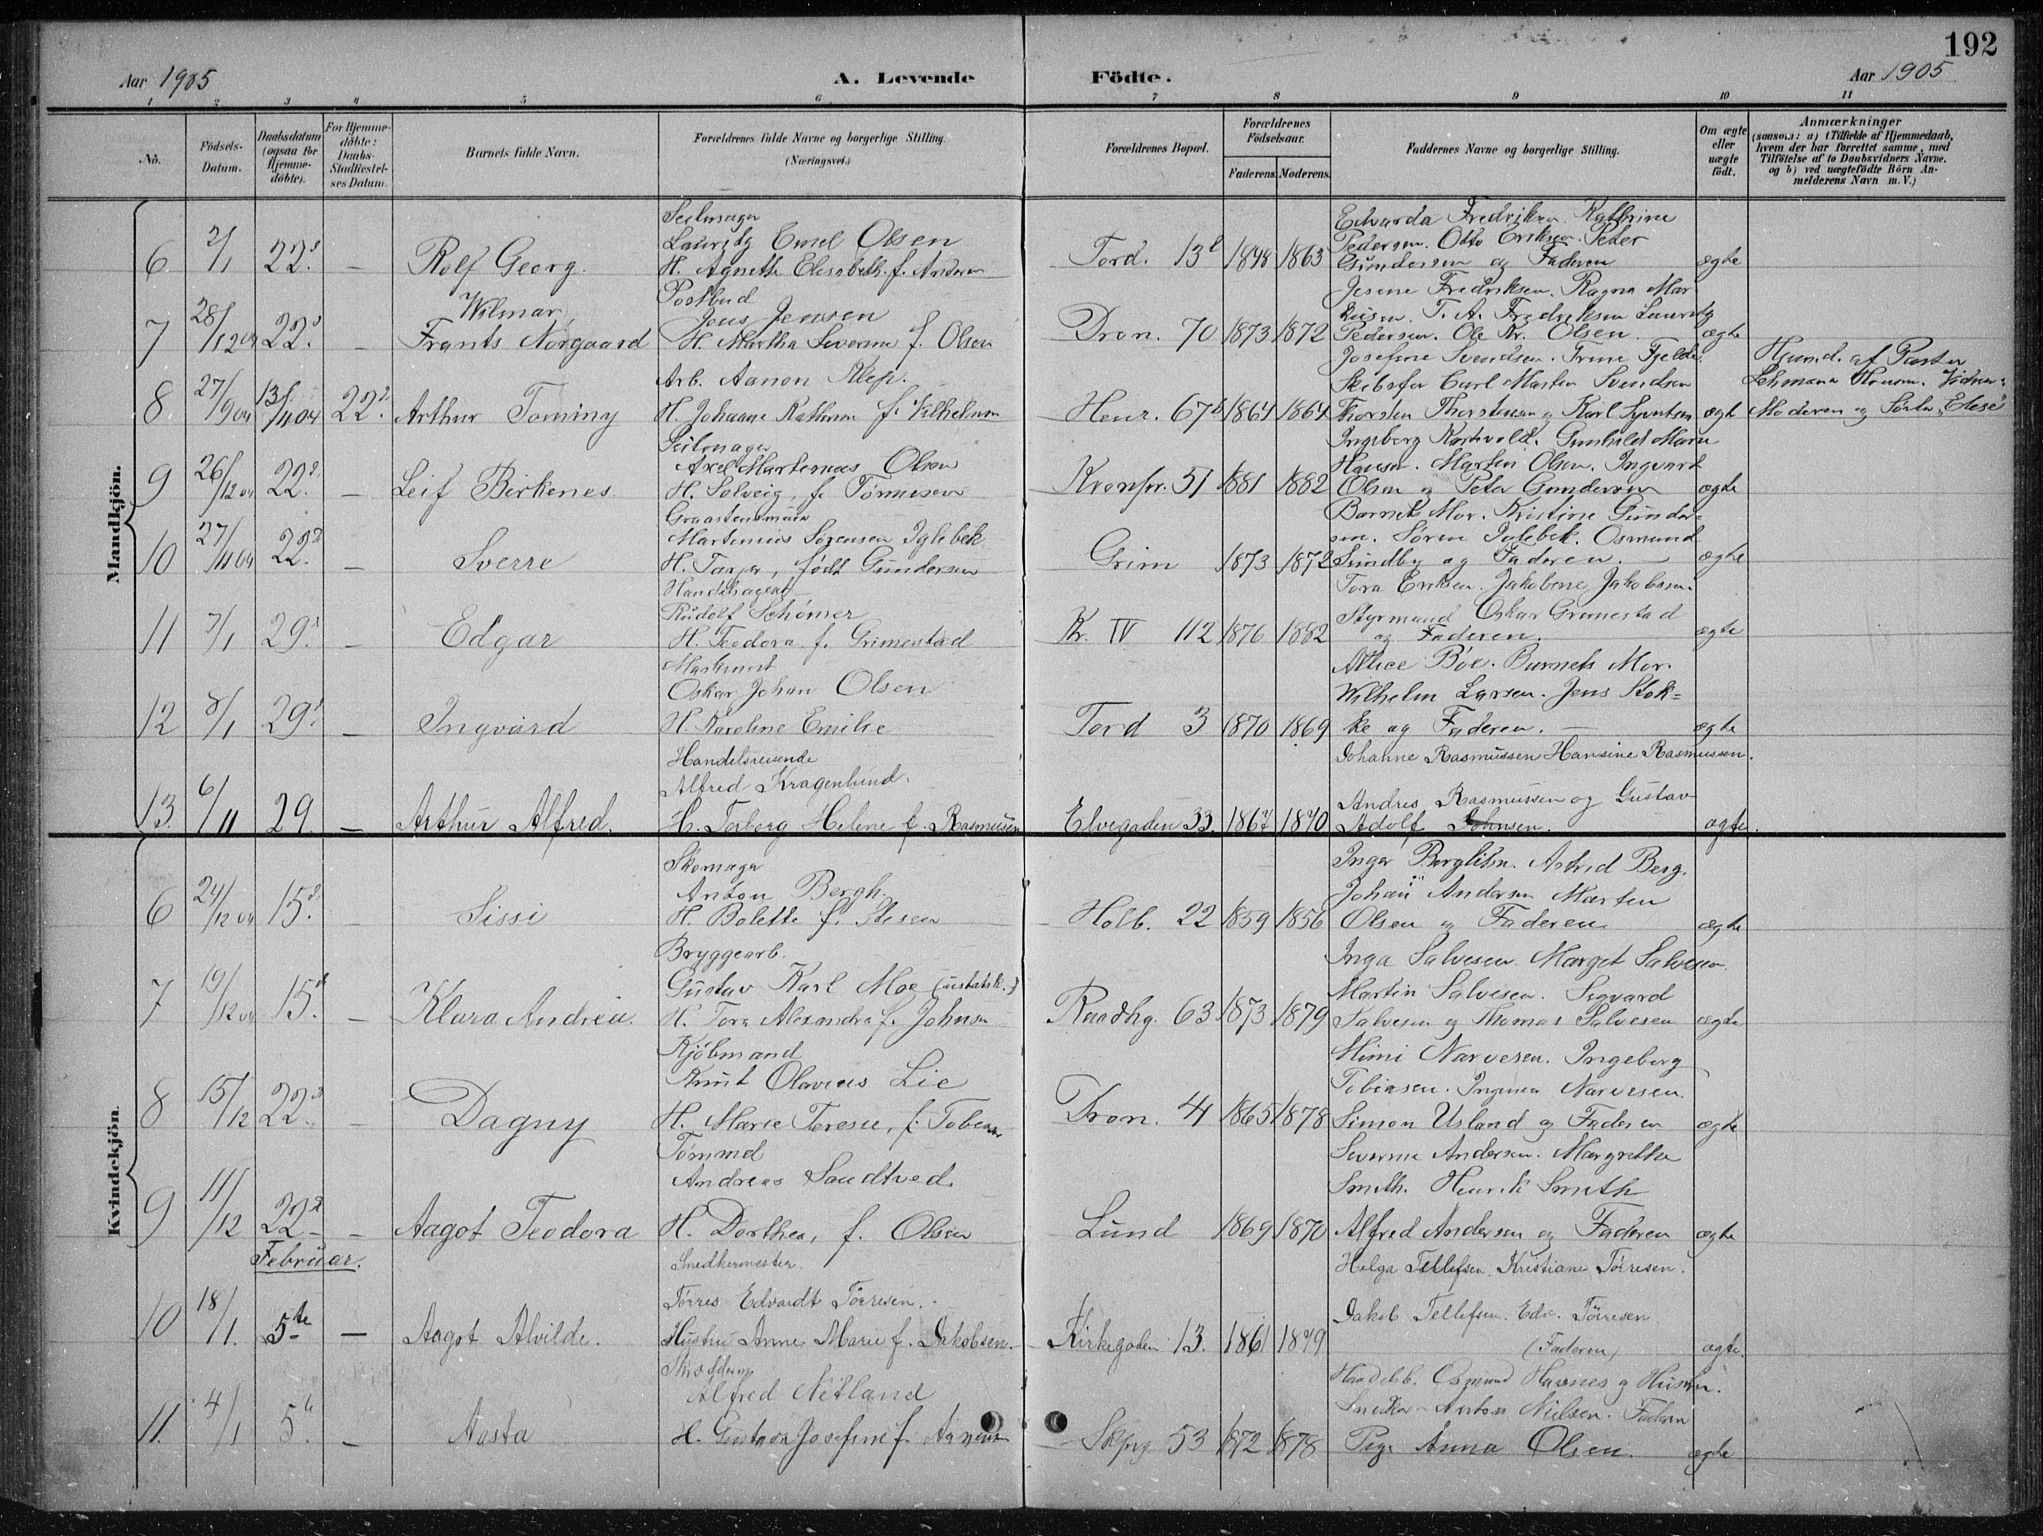 192
Aar 1905
A. Levende
Födte.
Aar 1905
1 2 3 4 5 6 7 8 9 10 11
No.
Födsels-
Datum.
Daabsdatum
(ogsaa for
Hjemme-
döbte).
For Hjemme-
döbte:
Daabs-
Stadfæstel-
ses Datum.
Barnets fulde Navn.
Forældrenes fulde Navne og borgerlige Stilling.
(Næringsvei.)
Forældrenes Bopæl.
Forældrenes
Födselsaar.
Faderens. Moderens.
Faddernes Navne og borgerlige Stilling.
Om ægte
eller
uægte
födt.
Anmærkninger
(saasom: a) i Tilfælde af Hjemmedaab,
hvem der har forrettet samme, med
Tilföielse af to Daabsvidners Navne.
og b) ved uægtefödte Börn An-
melderens Navn m. V.)
Mandkjön.
6 2/1 22. — Rolf Georg.
Seilmager
Emil Olsen
H. Agnethe Elisabeth f.
Tord. 13b 1848 1863
Edvarda Fredriksen. Kathrine
Pedersen. Otto Eriksen. Peder
Gundersen og Faderen
ægte
7 28/12 04 22. — Wilmar
Frants Nørgaard
Postbud
Jens Jensen
H. Martha Severine f. Olsen
Dron. 70 1873 1872
Jesine Fredriksen. Ragna Mar
kusen. T. A. Fredriksen Lauritz
Pedersen. Ole Kr. Olsen.
ægte
8 27/9 04 13/11 04 22. Arthur Tominy
Arb. Aanon Klep.
H. Johanne f. Vilhelmsen
Henr. 67b 1864 1864
Josefine Svendsen. Trine Fjelde.
Carl Martin Svendsen
Thorsten Thorstensen og Karl
ægt
Hjemd. af Pastor
Vidner:
Moderen og Søster "Elise"
9 26/12 04 22. — Leif Birkenes
Seilmager
Axel Martinius Olsen
H. Solveig, f. Tønnesen
Kronpr. 51 1881 1882
Ingeborg Gunhild Marie
Hansen. Martin Olsen. Ingvart
Olsen og Peter Gundersen
ægte
10 27/11 04 22. Sverre
Martinius Sørensen Iglebek
H. Tarjer, født Gundersen
Grim 1873 1872
Barnets Mor. Kristine Gunder-
sen. Søren Iglebek. Osmund
Sundby og Faderen.
ægte
11 7/1 29. — Edgar
Handelsagent
Rudolf Schømer
H. Teodora f. Grimestad
Kr. IV 112 1876 1882
Tora Eriksen. Jakobine Jakobsen.
Styrmand Oskar Grimestad
og Faderen.
ægte
12 8/1 29. — Ingvard
Maskinist
Oskar Johan Olsen
H. Karoline Emilie
Tord 3 1870 1869
Allice Bøe. Barnets Mor.
Wilhelm Larsen. Jens Stok-
ke og Faderen. —
ægte
13. 6/11 29 — Arthur Alfred.
Handelsreisende
Alfred Kragenlund.
H. Torborg Helene f. Rasmusen
Elvegaden 33. 1867 1870
Johanne Rasmussen Hansine Rasmussen.
Andres Rasmussen og Gustav
Adolf Johnsen.
ægte.
Kvindekjön.
6 24/12 04 15. — Sissi
Skomager
Anton Bergh.
H. Bolette f.
Holb. 22 1859 1856
Inger Berglihn. Astrid Berg.
Johan Andersen Marten
Olsen og Faderen
ægte
7 19/12 04 15. — Klara Andrea.
Bryggearb.
Gustav Karl Moe (ustatsk.)
H. Tora Alexandra f. Johnsen
Raadhg. 63 1873 1879
Inga Salvesen Marget Salvesen
Martin Salvesen. Sigvard
Salvesen og Thomas Salvesen
ægte
8 15/12 22. — Dagny
Kjøbmand
Knut Olavius Lie
H. Marie Teresie, f. Tobiasen
Dron. 4 1865 1878
Mimi Narvesen. Ingeborg
Tobiasen. Narvesen.
Simon Usland og Faderen
ægte
9 11/12 22. — Aagot Teodora
Tømmd
Andreas Sandtved.
H. Dorthea, f. Olsen
Lund 1869 1870
Severine Andersen. Margrethe
Smith. Henrik Smith
Alfred Andersen og Faderen
ægte
Februar.
10 18/1 5te — Aagot Alvilde.
Snedkermester.
Tørres Edvardt Tørresen.
Hustru Anne Marie f. Jakobsen.
Kirkegaden 13. 1861 1849
Helga Tellefsen. Kristiane Tørresen.
Jakob Tellefsen. Edv. Tørresen
(Faderen)
ægte.
11. 4/1 5te — Aasta
Alfred Netland
H. Gustava Josefine f.
Skpg 53 1872 1878
Osmund Havnes og Hustru.
Anton Nielsen. Faderen
Pige Anna Olsen.
ægte